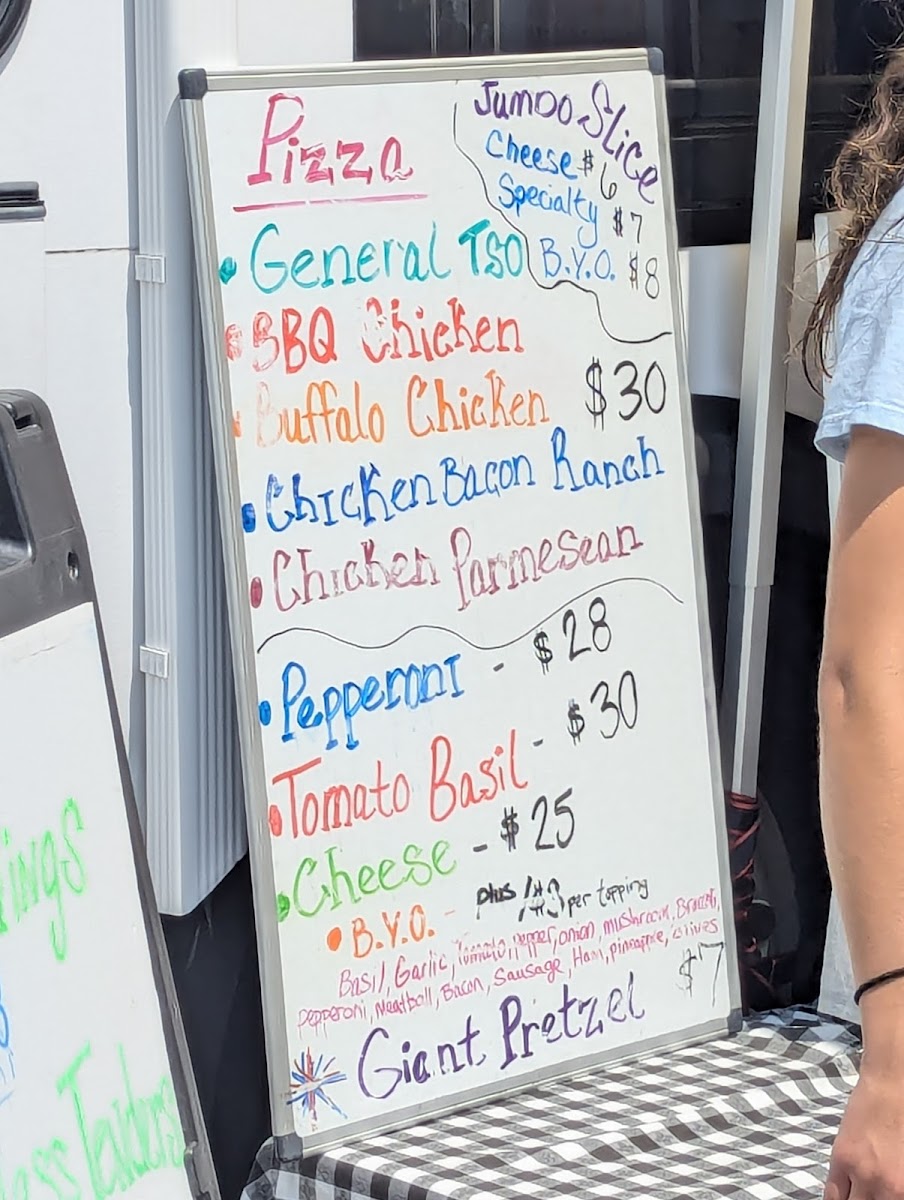 Pizza
Jumbo Slice
Cheese $6
Specialty $7
B.Y.O. $8
• General TSO
• BBQ Chicken
• Buffalo Chicken $30
• Chicken Bacon Ranch
• Chicken Parmesean
• Pepperoni - $28
• Tomato Basil - $30
• Cheese - $25
• B.Y.O. - plus /$3 per topping
Basil, Garlic, Tomato, pepper, onion, mushroom, Broccoli,
Pepperoni, Meatball, Bacon, Sausage, Ham, pineapple, olives
Giant Pretzel $7
ings
less Tenders